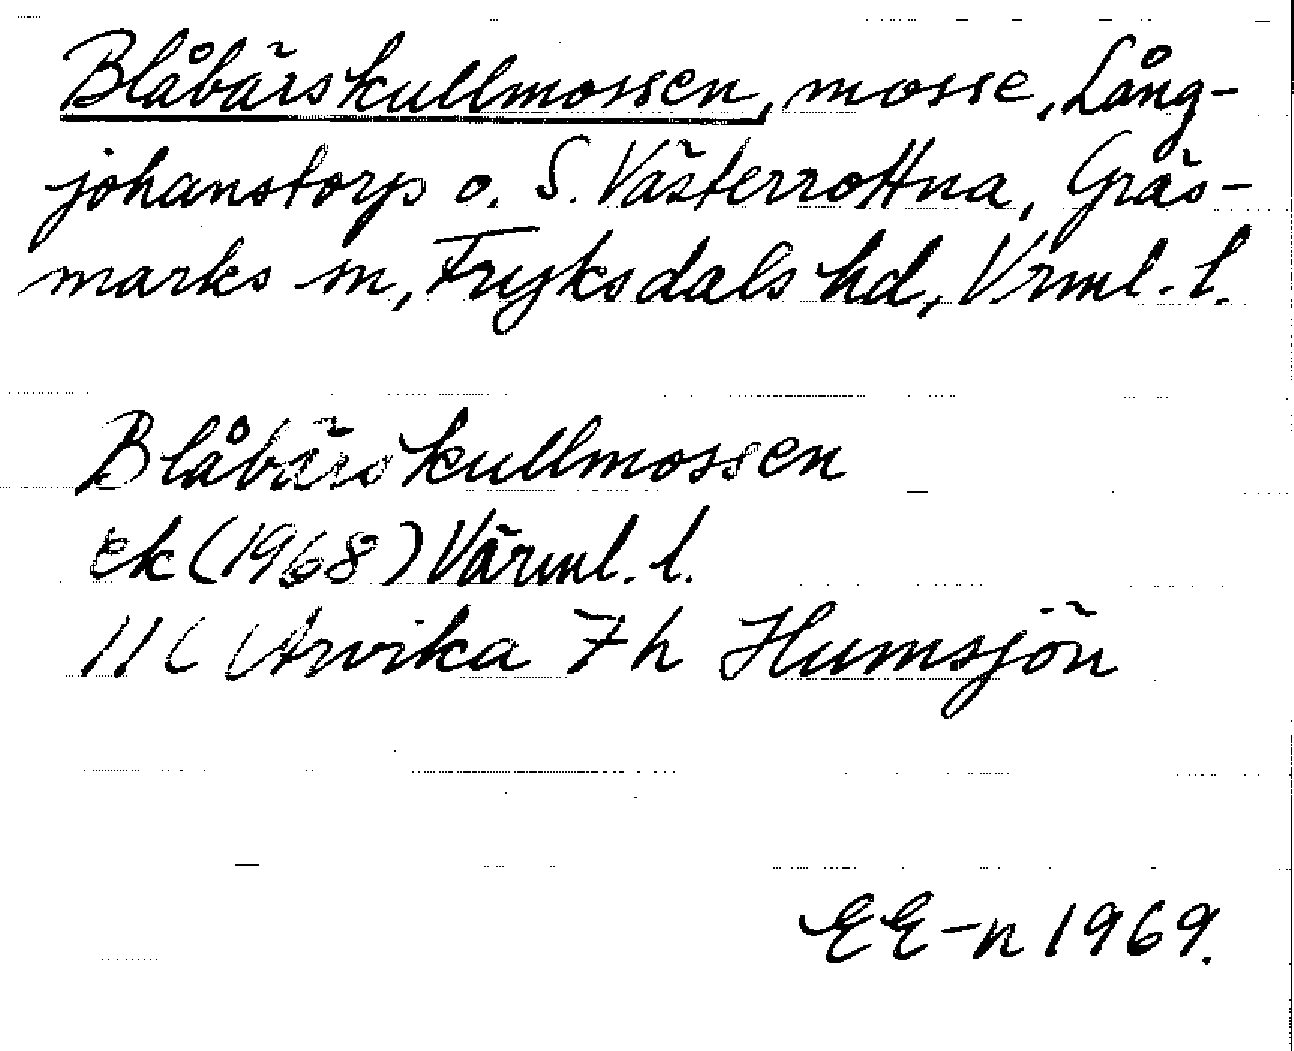 Blåbärskullmossen, mosse, Lång-
johanstorp o. S. Västerrottna, Gräs-
marks sn, Fryksdals hd, Vrml. l.
Blåbärskullmossen
ek (1968) Värml. l.
11C Arvika 7h Humsjön
EE-n 1969.